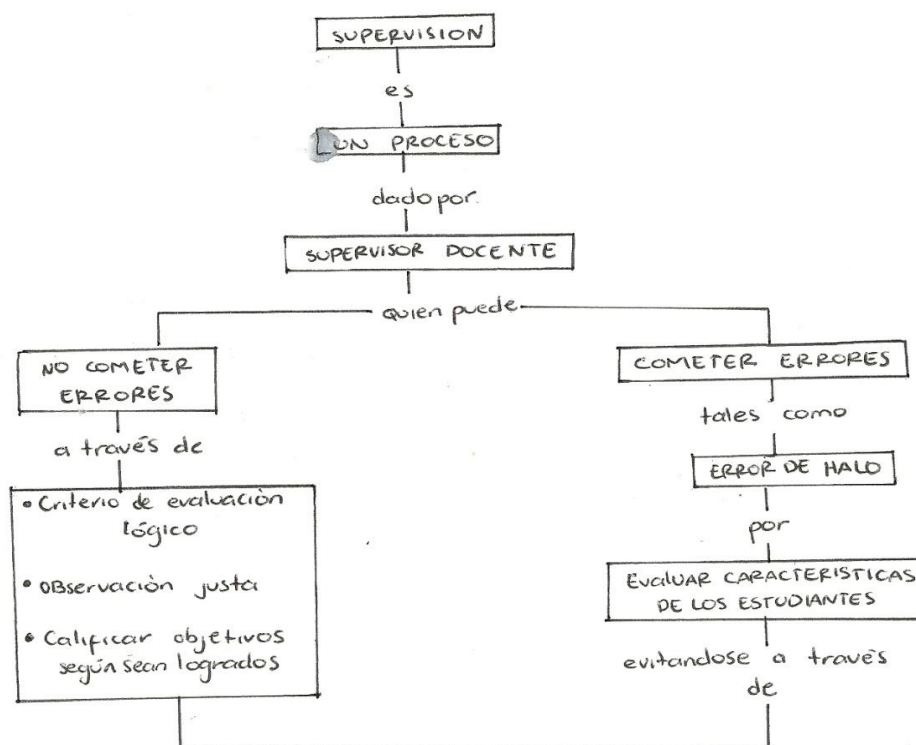 SUPERVISION
es
UN PROCESO
dado por
SUPERVISOR DOCENTE
Quien puede
NO COMETER
ERRORES
a través de
• Criterio de evaluación
lógico
• OBservación justa
• Calificar objetivos
según sean logrados
COMETER ERRORES
tales como
ERROR DE HALO
por
EvaLUAR CARACTERISTICAS
DE LOS ESTUDIANTES
evitandose a través
de